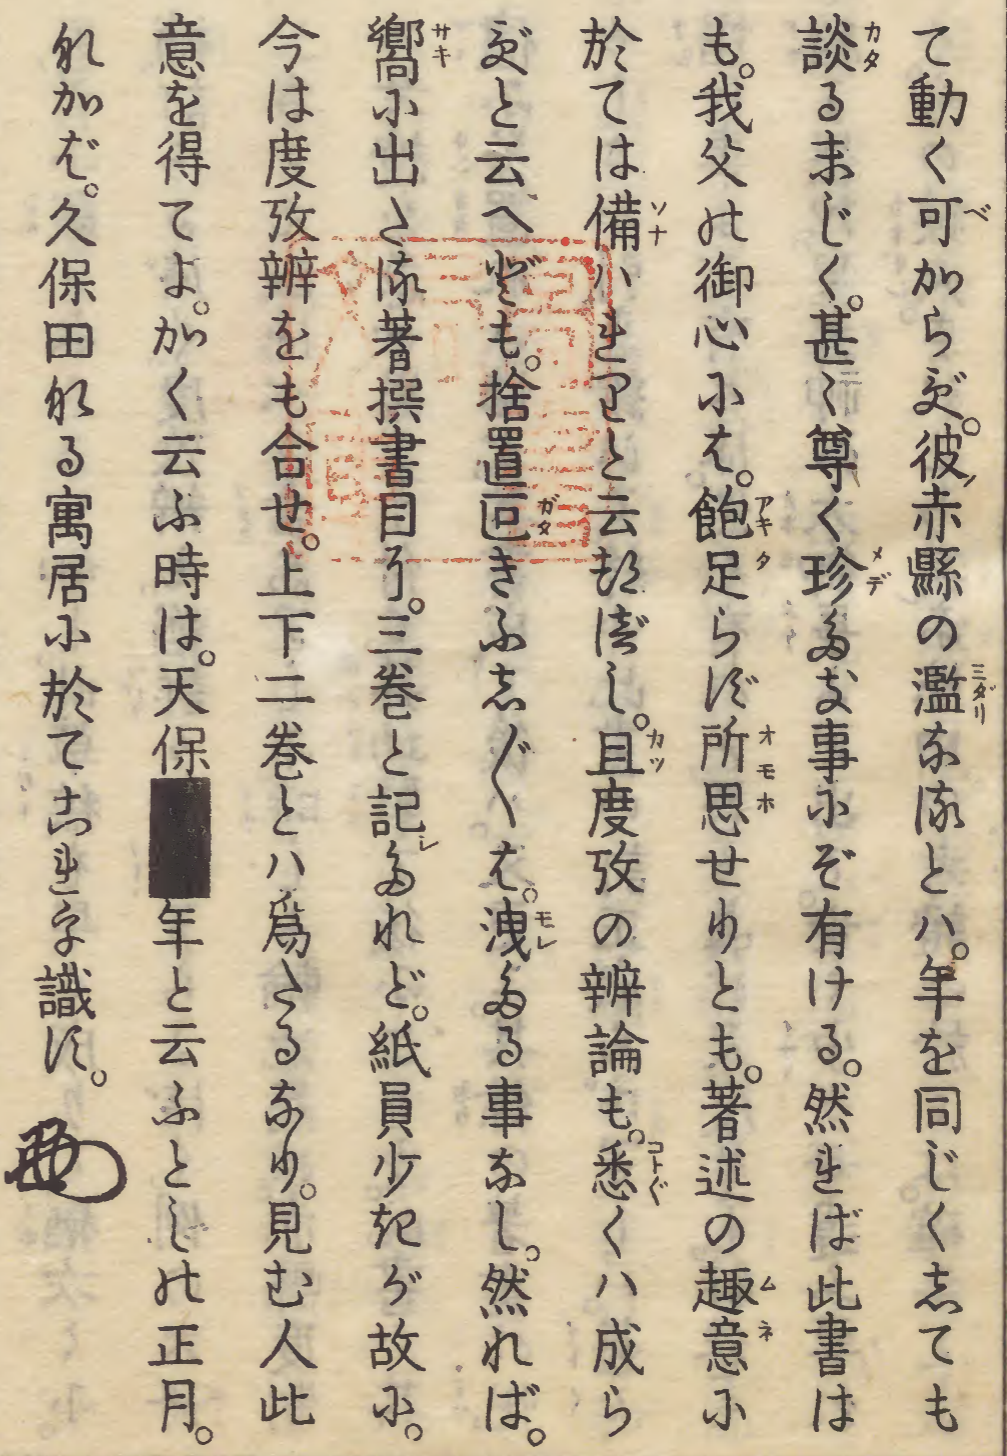 て動く可からず。彼ノ赤縣の濫なるとハ。年を同じくしても
談るまじく。甚く尊く珍たき事にぞ有ける。然れば此書は
も。我父の御心には。飽足らず所思せりとも。著述の趣意に
於ては備ハれりと云つべし。且度攷の辨論も。悉くハ成ら
ずと云へども。捨置叵きふし〴〵は。洩たる事なし。然れば。
嚮に出たる著撰書目に。三巻と記したれど。紙員少きが故に。
今は度攷辨をも合せ。上下二巻とハ爲たるなり。見む人此
意を得てよ。かく云ふ時は。天保 年と云ふとしの正月。
なかば。久保田なる寓居に於てこれを識す。